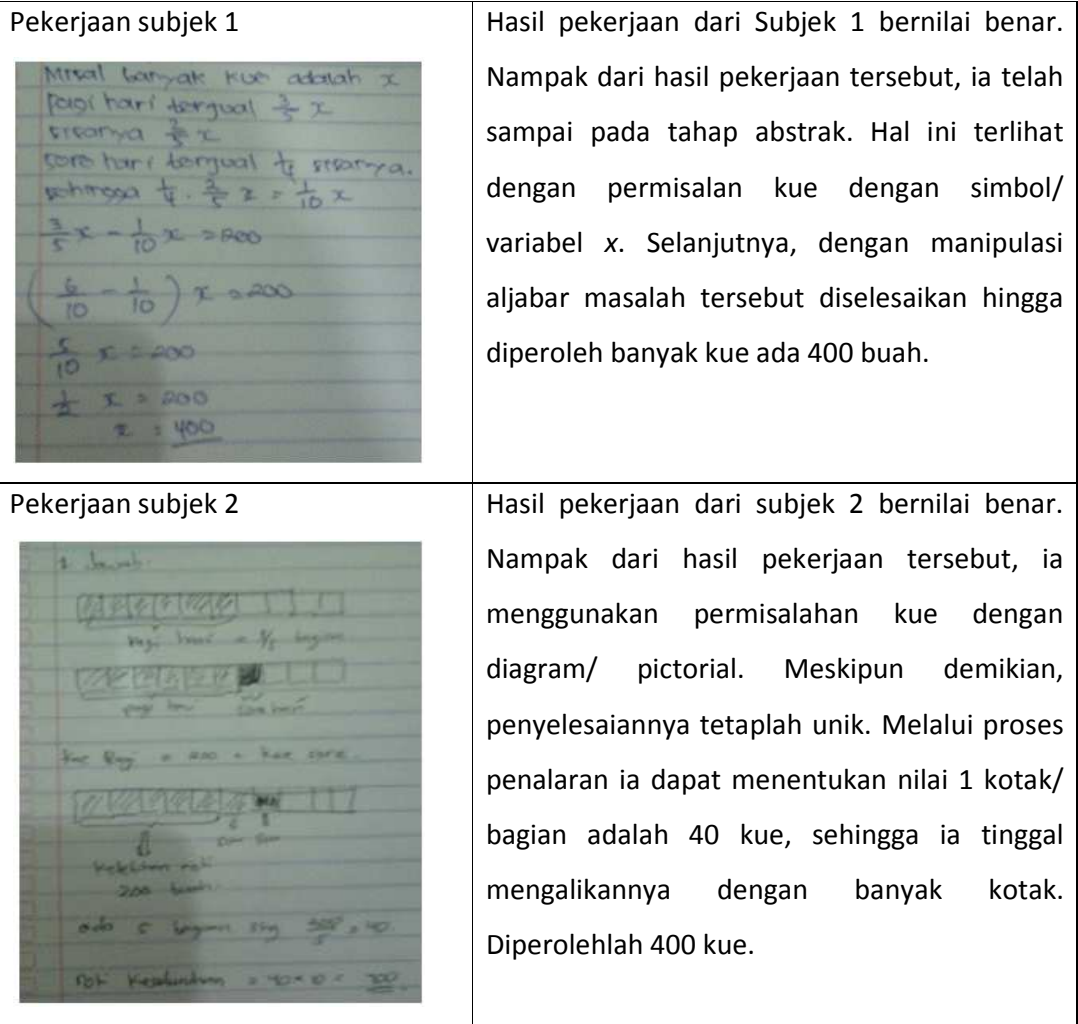 Pekerjaan subjek 1
Misal banyak kue adalah x
pagi hari terjual 3/5 x
sisanya 2/5 x
sore hari terjual 1/4 sisanya.
sehingga 1/4 . 2/5 x = 1/10 x
3/5 x - 1/10 x = 200
(6/10 - 1/10) x = 200
5/10 x = 200
1/2 x = 200
x = 400
Hasil pekerjaan dari Subjek 1 bernilai benar.
Nampak dari hasil pekerjaan tersebut, ia telah
sampai pada tahap abstrak. Hal ini terlihat
dengan permisalan kue dengan simbol/
variabel x. Selanjutnya, dengan manipulasi
aljabar masalah tersebut diselesaikan hingga
diperoleh banyak kue ada 400 buah.
Pekerjaan subjek 2
Jawab.
pagi hari = 3/5 bagian
pagi hari sore hari
kue Pagi = 200 + kue sore.
200 buah
ada 5 bagian = 40.
= 40 x 10 =
Hasil pekerjaan dari subjek 2 bernilai benar.
Nampak dari hasil pekerjaan tersebut, ia
menggunakan permisalahan kue dengan
diagram/ pictorial. Meskipun demikian,
penyelesaiannya tetaplah unik. Melalui proses
penalaran ia dapat menentukan nilai 1 kotak/
bagian adalah 40 kue, sehingga ia tinggal
mengalikannya dengan banyak kotak.
Diperolehlah 400 kue.